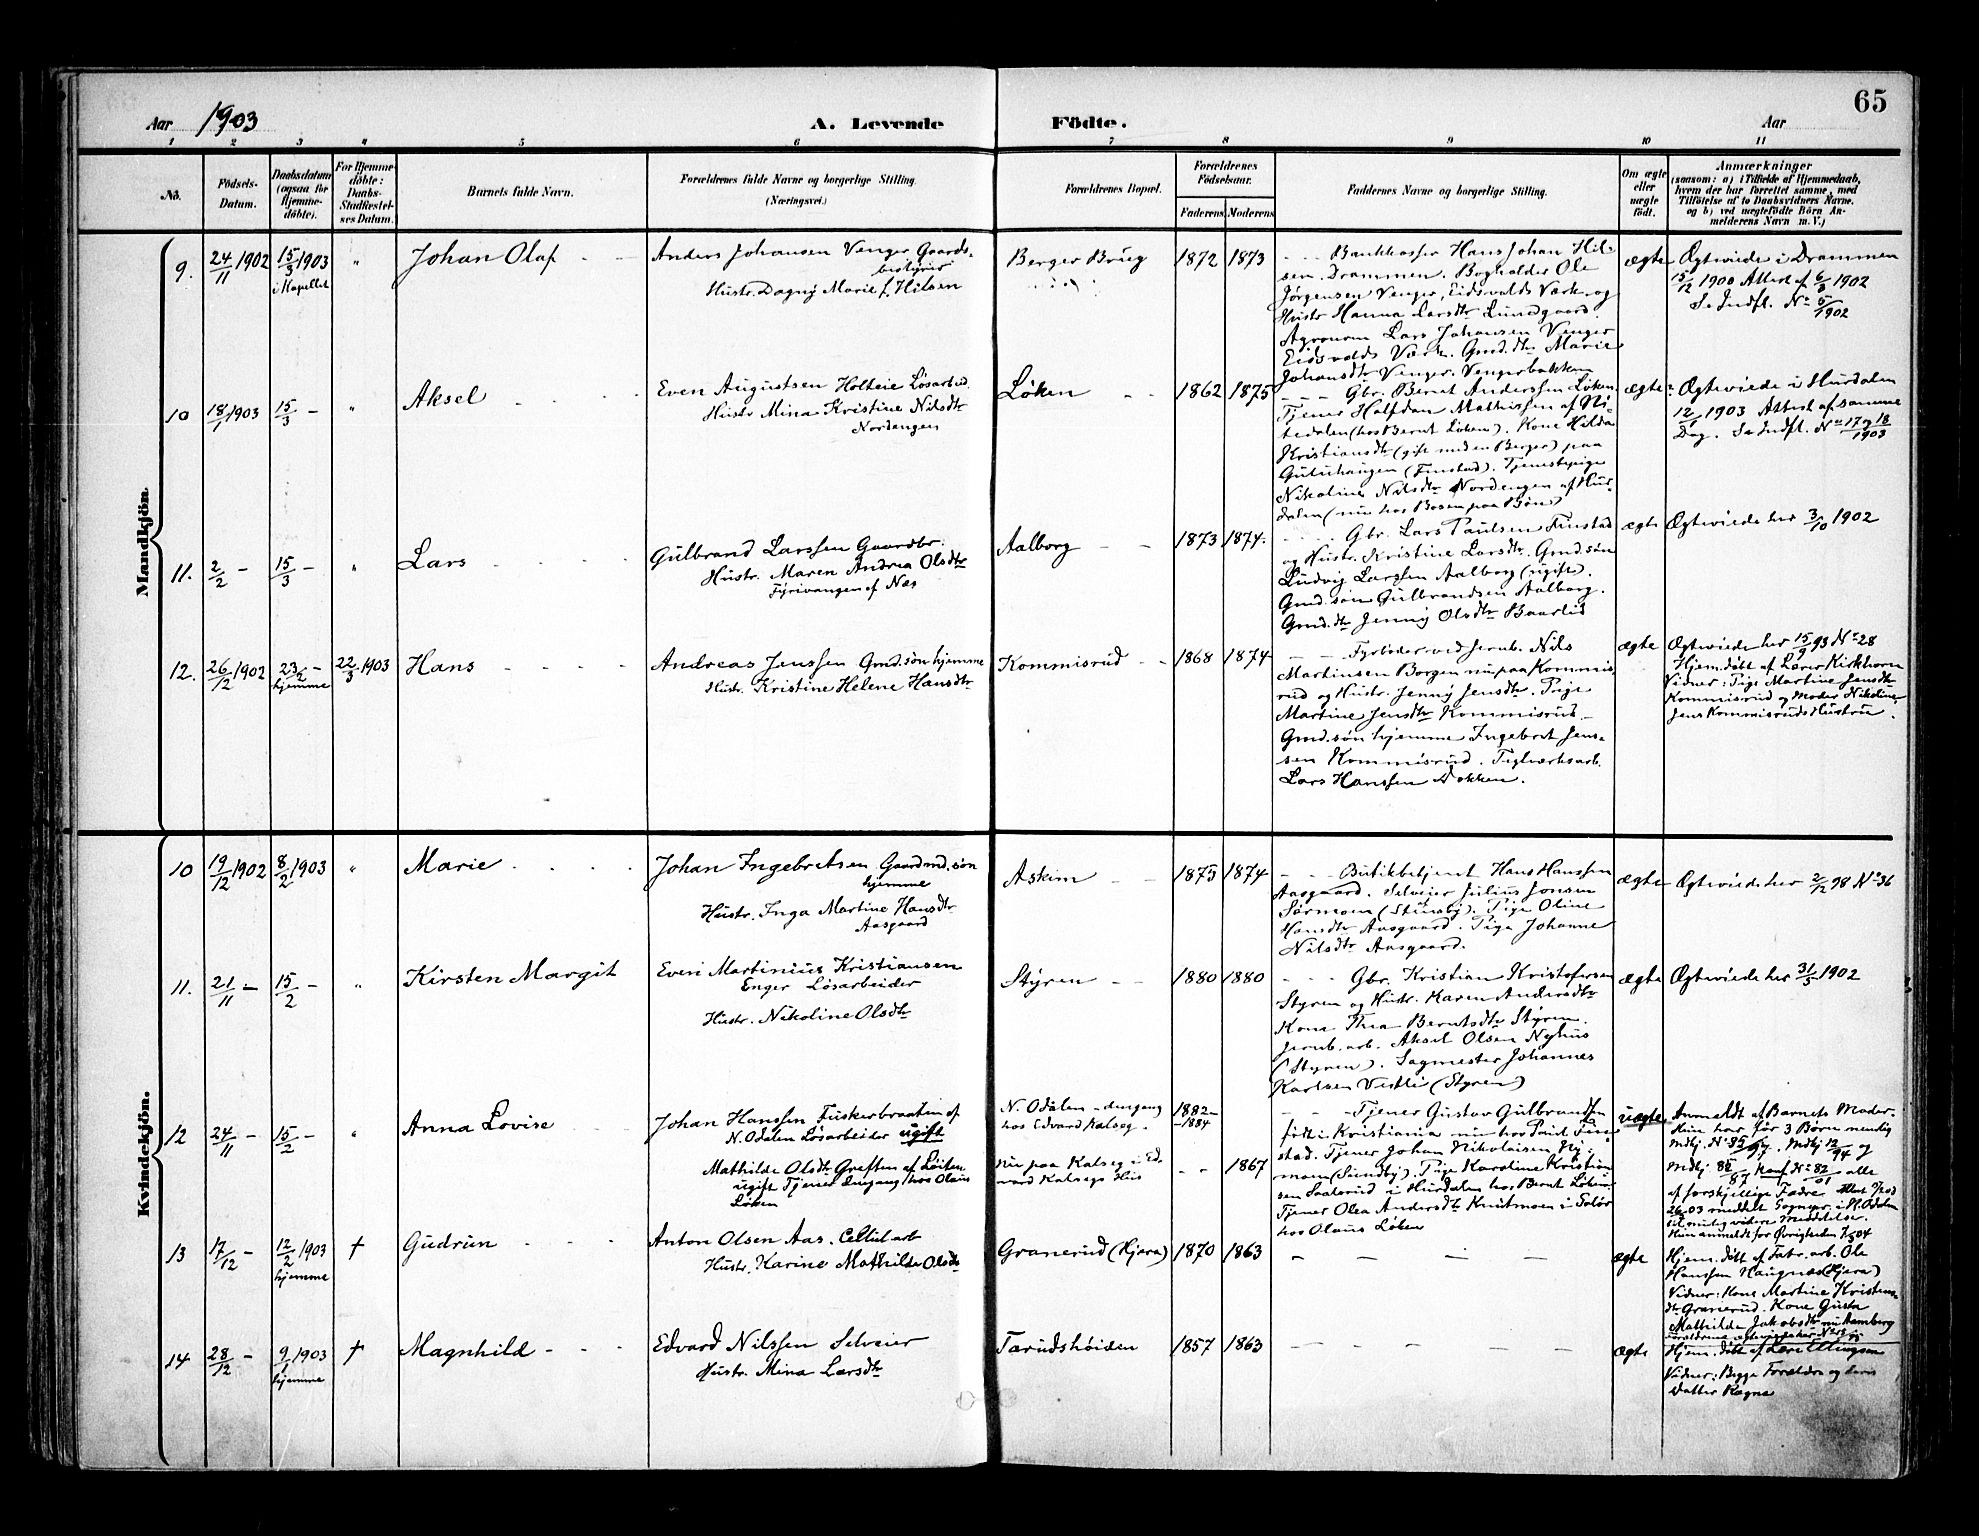 65
Aar 1903
A. Levende Födte.
Aar
1 2 3 4 5 6 7 8 9 10 11
No.
Födsels-Datum.
Daabsdatum (ogsaa for Hjemme-döbte).
For Hjemme-döbte: Daabs-Stadfæstel-ses Datum.
Barnets fulde Navn.
Forældrenes fulde Navne og borgerlige Stilling.
(Næringsvei.)
Forældrenes Bopæl.
Forældrenes Födselsaar.
Faderens. Moderens.
Faddernes Navne og borgerlige Stilling.
Om ægte eller uægte födt.
Anmærkninger
(saasom: a) i Tilfælde af Hjemmedaab,
hvem der har forrettet samme, med
Tilföielse af to Daabsvidners Navne,
og b) ved uægtefödte Börn An-
melderens Navn m. V.)
Mandkjön.
9. 24/11 1902 15/3 1903 i Kapellet " Johan Olaf
Anders Johansen Venger Gaards-
bestyrer
Hustr. Dagny Marie f. Hilsen
Berger Brug 1872 1873
Bankkasser Hans Johan Hil-
sen Drammen. Bogholder Ole
Jørgensen Venger, Eidsvolds Værk og
Hustr Hanna Larsdtr Lundgaard.
Agronom Lars Johansen Venger
Eidsvolds Værk. Gmd.dtr Marie
Johansdtr Venger. Vengerbakken
ægte Ægteviede i Drammen
15/12 1900 Attest af 6/3 1902
Se Indfl. No 5/1902
10 18/1 1903 15/3 – " Aksel
Even Augustsen Holteie Løsarbeid.
Hustr Mina Kristine Nilsdtr
Nordengen
Løken 1862 1875
Gbr. Bernt Anderssen Løken
Tjener Halfdan Mathissen af Ni-
tedalen (hos Bernt Løken). Kone Hilda
Kristiansdtr (gift med en Berger) paa
Guluhaugen (Finstad). Tjenestepige
Nikoline Nilsdtr Nordengen af Hur-
dalen (nu hos Bosen paa Bøn)
ægte Ægteviede i Hurdalen
12/1 1903 Attest af samme
Dag. Se Indfl. No 17 og 18/1903
11. 2/2 – 15/3 – " Lars
Gulbrand Larssen Gaardbr.
Hustr. Maren Andrea Olsdtr
Fyrivangen af Næs
Aalborg 1873 1874.
Gbr. Lars Paulsen Finstad
og Hustr. Kristine Larsdtr. Gmd.søn
Ludvig Larssen Aalborg (ugift).
Gmd.søn Gulbrandsen Aalborg.
Gmd.dtr Jenny Olsdtr Baarlid
ægte Ægteviede her 3/10 1902
12. 26/12 1902 23/2 – hjemme 22/3 1903 Hans
Andreas Jenssen Gmd.søn hjemme
Hustr. Kristine Helene Hansdtr
Kommisrud 1868 1874
Fyrbøder ved Jernb. Nils
Martinsen Borgen nu paa Kommis-
rud og Hustr. Jenny Jensdtr. Pige
Martine Jensdtr Kommisrud.
Gmd.søn hjemme Ingebret Jens-
sen Kommisrud. Teglværksarb.
Lars Hanssen Dokken.
ægte Ægteviede her 15/9 93 No 28
Hjem.døbt af Lærer Kirkhorn
Vidner: Pige Martine Jensdtr
Kommisrud og Moder Nikoline
Jens Kommisruds Hustru.
Kvindekjön.
10 19/12 1902 8/2 1903 " Marie
Johan Ingebretsen Gaardmd.søn
hjemme
Hustr. Inga Martine Hansdtr
Aasgaard
Askim 1875 1874
Butikbetjent Hans Hanssen
Aasgaard. Selveier Julius Jonsen
Sørmoen (Stensby). Pige Oline
Hansdtr Aasgaard. Pige Johanne
Nilsdtr Aasgaard.
ægte Ægteviede her 2/12 98 No 36
11. 21/11 – 15/2 – " Kirsten Margit
Even Martinius Kristiansen
Enger Løsarbeider
Hustr. Nikoline Olsdtr
Styren 1880 1880
Gbr. Kristian Kristofersen
Styren og Hustr. Karen Andersdtr
Kone Thea Berntsdtr Styren.
Jernb. arb. Aksel Olsen Nyhus
(Styren). Sagmester Johannes
Karlsen Vestli (Styren)
ægte Ægteviede her 31/5 1902
12 24/11 – 15/2 – " Anna Lovise
Johan Hanssen Fuskerbraaten af
N. Odalen Løsarbeider ugift
Mathilde Olsdtr Greften af Løiten
ugift Tjener hos Olaus
Løken
N. Odalen
hos Edvard Kalseg.
nu paa Kalseg i Ed-
vard Kalsegs Hus
1882 – 1884
1867
Tjener Gustav Gulbrandsen
født i Kristiania nu hos Paul Fin-
stad. Tjener Johan Nikolaisen Ny-
moen (Sundby). Pige Karoline Kristian
sen Saaterud i Hurdalen hos Bernt Løken.
Tjener Olea Andersdtr Knutmoen i Solør
hos Olaus Løken
uægte Anmeldt af Barnets Moder.
Hun har før 3 Børn nemlig
Mdkj. No 85/97. Mdkj 12/94 og
alle
af forskjellige Fædre
13 17/12 – 12/2 1903 hjemme † Gudrun
Anton Olsen Aas. Cellul.arb
Hustr. Karine Mathilde Olsdtr
Granerud (Hjera) 1870 1863
ægte Hjem.døbt af Fabr.arb. Ole
Hanssen Haugnæs (Hjera)
Vidner: Kone Martine Kristens-
dtr Granerud. Kone Gusta
Mathilde Jakobsdtr
14 28/12 – 9/1 1903 hjemme † Magnhild
Edvard Nilssen Selveier
Hustr. Mina Larsdtr
Tærudshøiden 1857 1863
ægte Hjem.døbt af Lærer Ellingsen
Vidner: Begge Forældre og deres
Datter Ragna